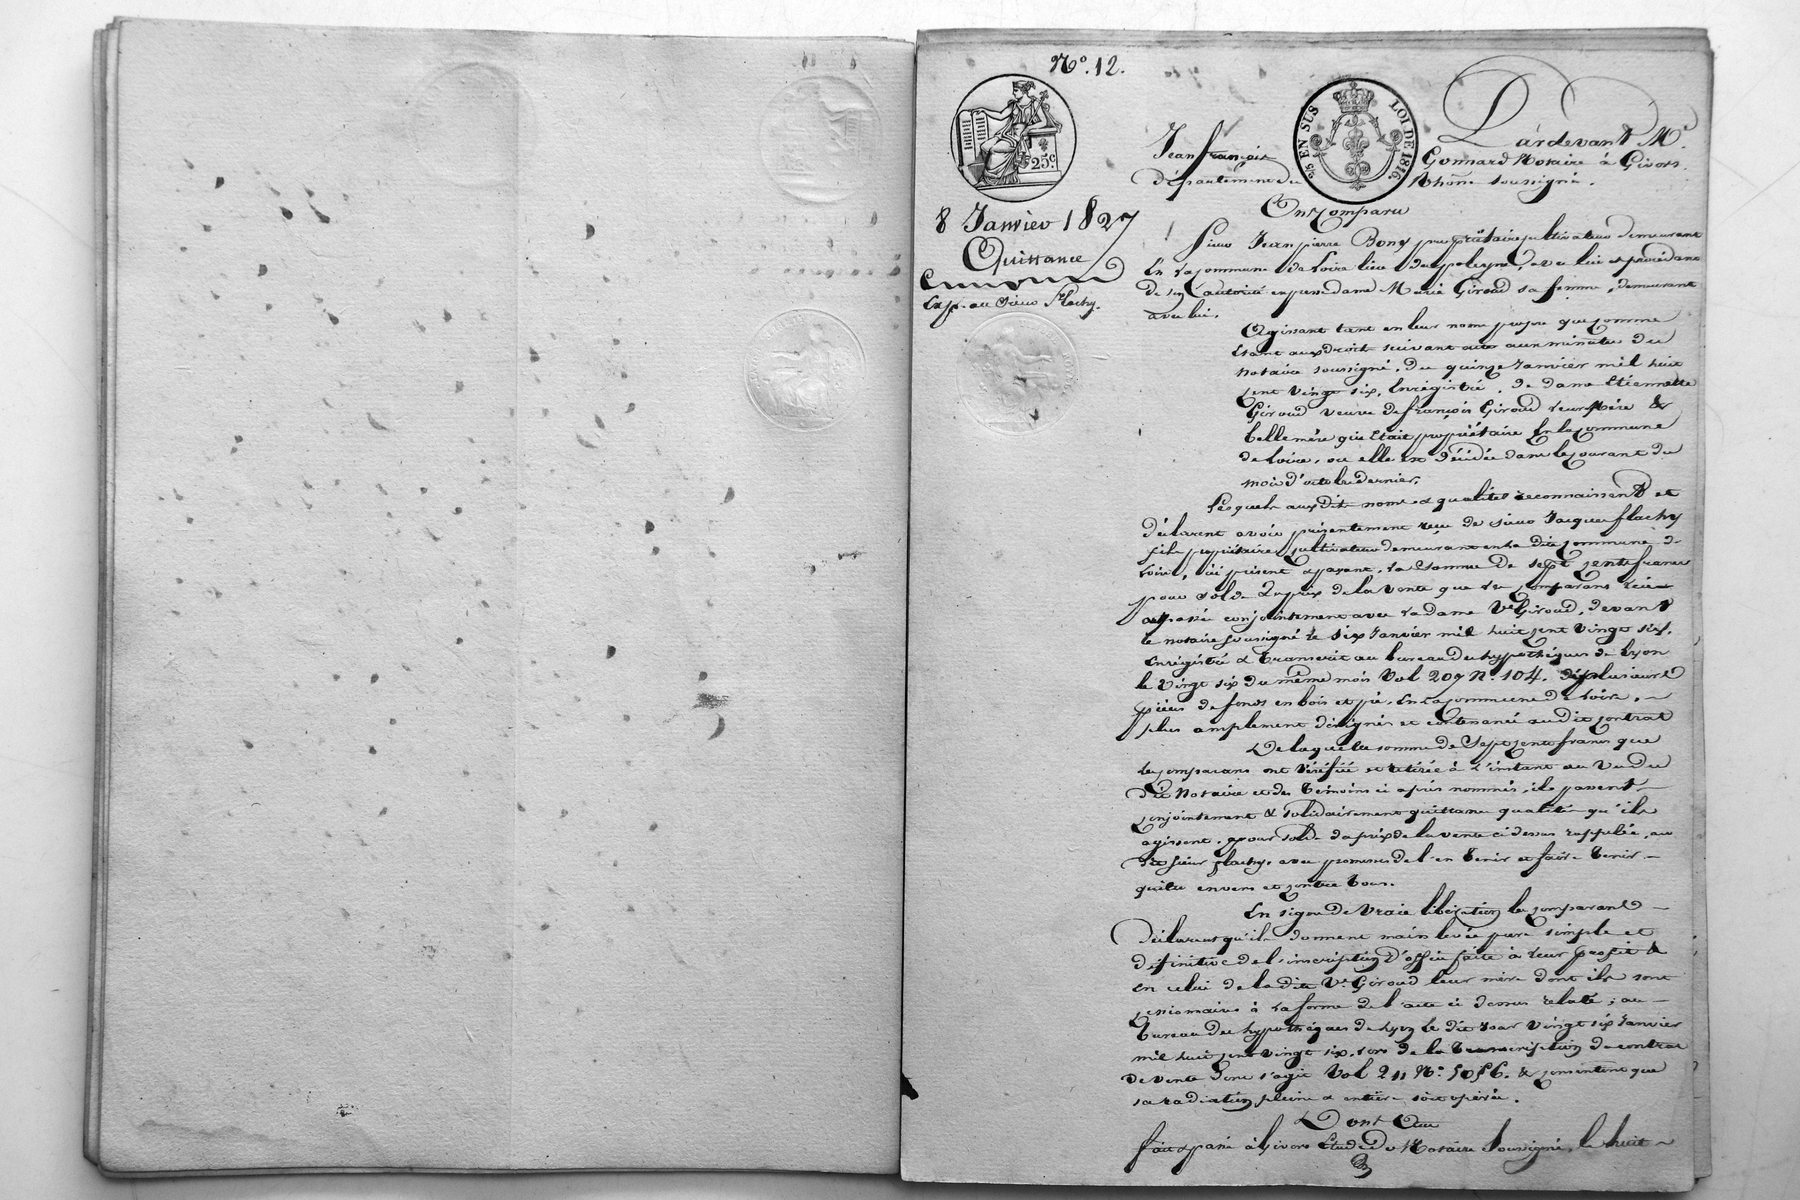 N.° 12.
25.c
25 EN SUS LOI DE 1816.
8 Janvier 1827
Quittance
Exp. au Sieur Flachy.
Pardevant M.e
Jean françois Gonnard Notaire à Givors
département du Rhône soussigné.
Ont Comparu
Sieur Jean pierre Bony propriétaire cultivateur demeurant
En la commune de Loire lieu de, avec lui et procédant
de son autorité en present dame Marie Giroud sa femme, demeurant
avec lui.
Agissant tant en leur nome propre que comme
Etant aux droits suivant acte aux minutes du
notaire soussigné, du quinze Janvier mil huit
cent vingt six, Enrégistré, de dame Etiennette
Giroud veuve de françois Giroud leur mère &
belle mère qui Etait propriétaire En la Commune
de Loire, ou elle est décédée dans le courant du
mois d'octobre dernier.
Lesquels aux dits noms & qualités reconnaissent et
déclarent avoir présentement reçu de sieur Jacques flachy
fils propriétaire cultivateur demeurant en la dite commune de
Loire, ici présent & payant, la Somme de sept cents francs
pour solde du prix de la vente que les comparans lui
passée conjointement avec la dame Ve Giroud, devant
le notaire soussigné le six Janvier mil huit cent vingt six,
Enrégistré & transcrit au bureau des hypothèques de Lyon
le vingt six du même mois Vol 209 N° 104. de plusieurs
pièces de fonds en bois et pré, En la commune de Loire,
plus amplement désignés et contenancé au dit contrat
De laquelle somme de Sept cents francs que
les comparans ont vérifiée et retirée à l'instant au vu du
dit Notaire et des témoins ci après nommés, ils passent
conjointement & solidairement quittance qualité qu'ils
agissent, & pour solde du prix de la vente ci dessus rappelée, au
dit sieur flachy, avec promesse de l'en tenir et faire tenir
quitte envers et contre tous.
En signe de vraie libération les comparans
déclarent qu'ils donnent main levée pure simple et
définitive de l'inscription d'office faite à leur profit &
En celui de la dite Ve Giroud leur mère dont ils sont
à la forme de l'acte ci dessus relaté, au
bureau des hypothèques de Lyon le dit jour vingt six Janvier
mil huit cent vingt six, lors de la transcription du contrat
de vente dont s'agit Vol 211 N° 5056. & consentent que
sa radiation pleine & entière soit opérée.
Dont Acte
fait & passé à Givors Etude du Notaire soussigné, le huit